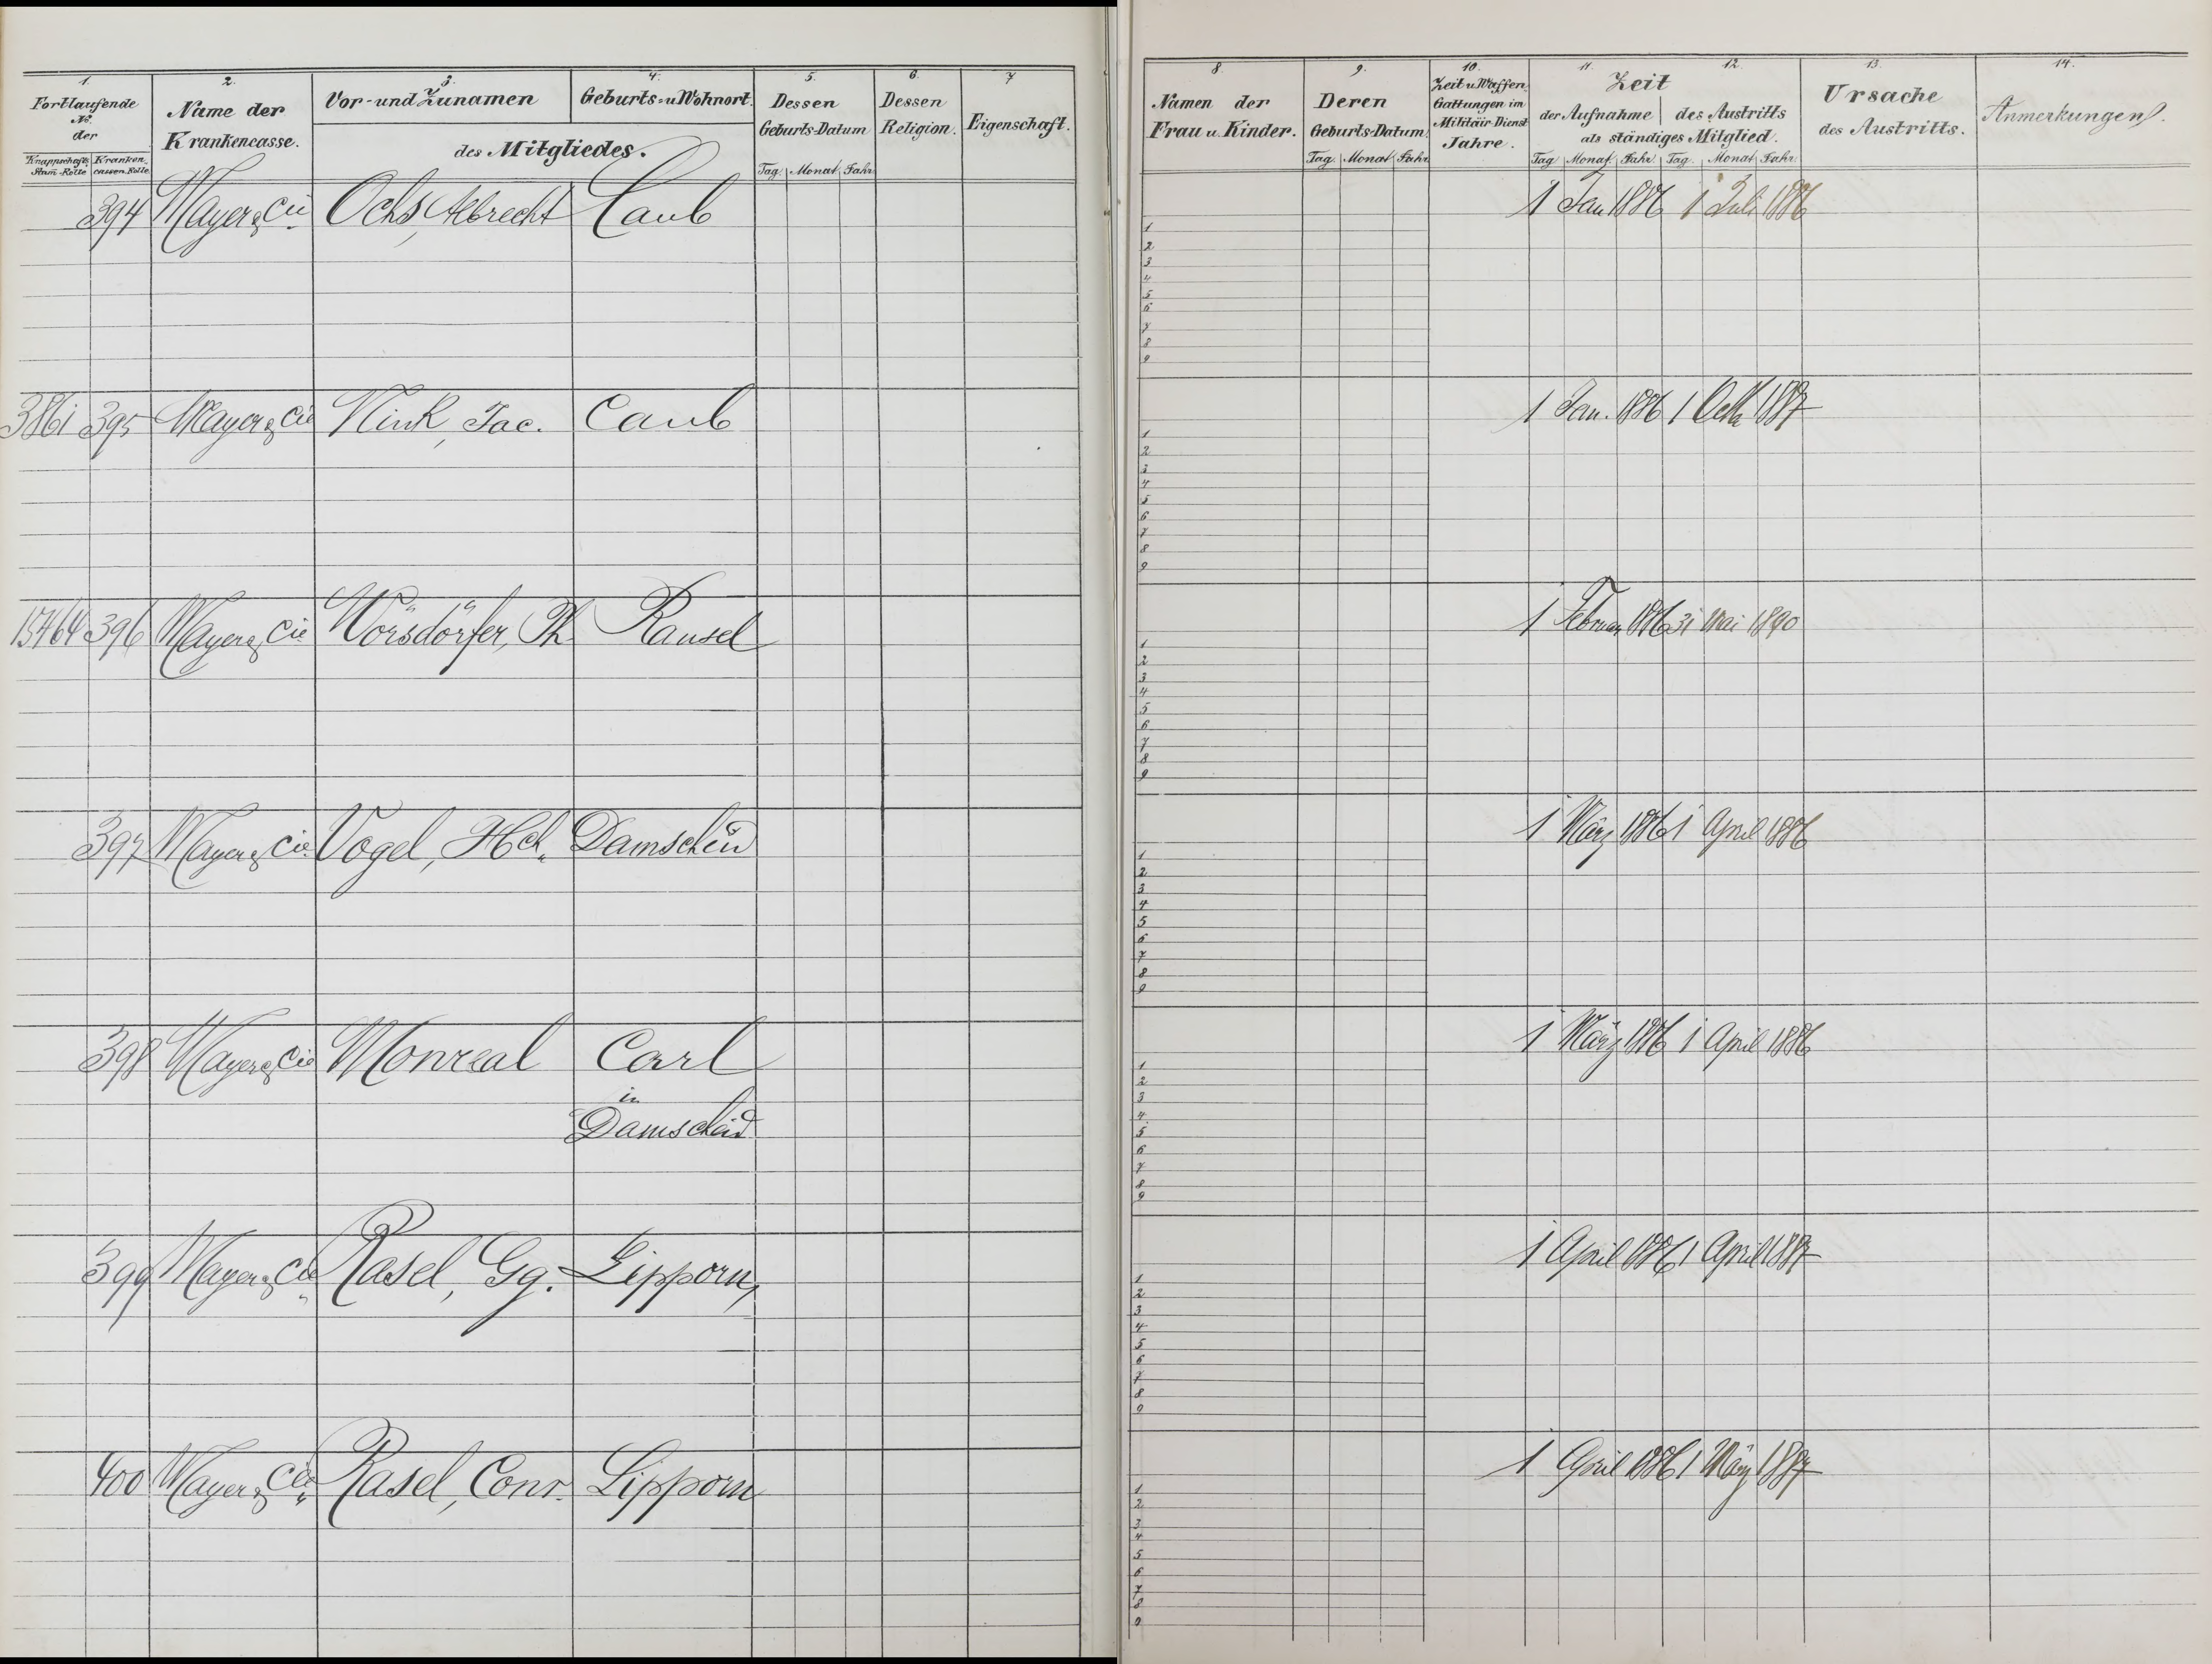 1. 2. 3. 4. 5. 6. 7
Fortlaufende No. der
Knappschafts Stam-Rolle Kranken cassen Rolle
Name der Krankencasse.
Vor- und Zunamen Geburts- u Wohnort.
des Mitgliedes.
Dessen Geburts-Datum
Tag Monat Jahr
Dessen Religion.
Eigenschaft.
394 Mayer & Cie Ochs, Albrecht Caub
3861 395 Mayer & Cie Nink, Jac. Caub
15764 396 Mayer & Cie Wörsdörfer, Ph Ransel
397 Mayer & Cie. Vogel, Hch. Damscheid
398 Mayer & Cie Monreal Carl
in
Damscheid
399 Mayer & Cie Rasel, Gg. Lipporn,
400 Mayer & Cie Rasel, Conr. Lipporn
8. 9. 10. 11. 12. 13. 14.
Namen der Frau u. Kinder.
Deren Geburts-Datum.
Tag Monat Jahr
Zeit u Waffen-Gattungen im Militair-Dienst Jahre.
Zeit
der Aufnahme des Austritts
als ständiges Mitglied.
Tag Monat Jahr Tag Monat Jahr
Ursache des Austritts.
Anmerkungen.
1 Jan 1886 1 Juli 1886
1
2
3
4
5
6
7
8
9
1 Jan. 1886 1 Octb 1887
1
2
3
4
5
6
7
8
9
1 Februar 1886 31 Mai 1890
1
2
3
4
5
6
7
8
9
1 März 1886 1 April 1886
1
2
3
4
5
6
7
8
9
1 März 1886 1 April 1886
1
2
3
4
5
6
7
8
9
1 April 1886 1 April 1887
1
2
3
4
5
6
7
8
9
1 April 1886 1 März 1887
1
2
3
4
5
6
7
8
9